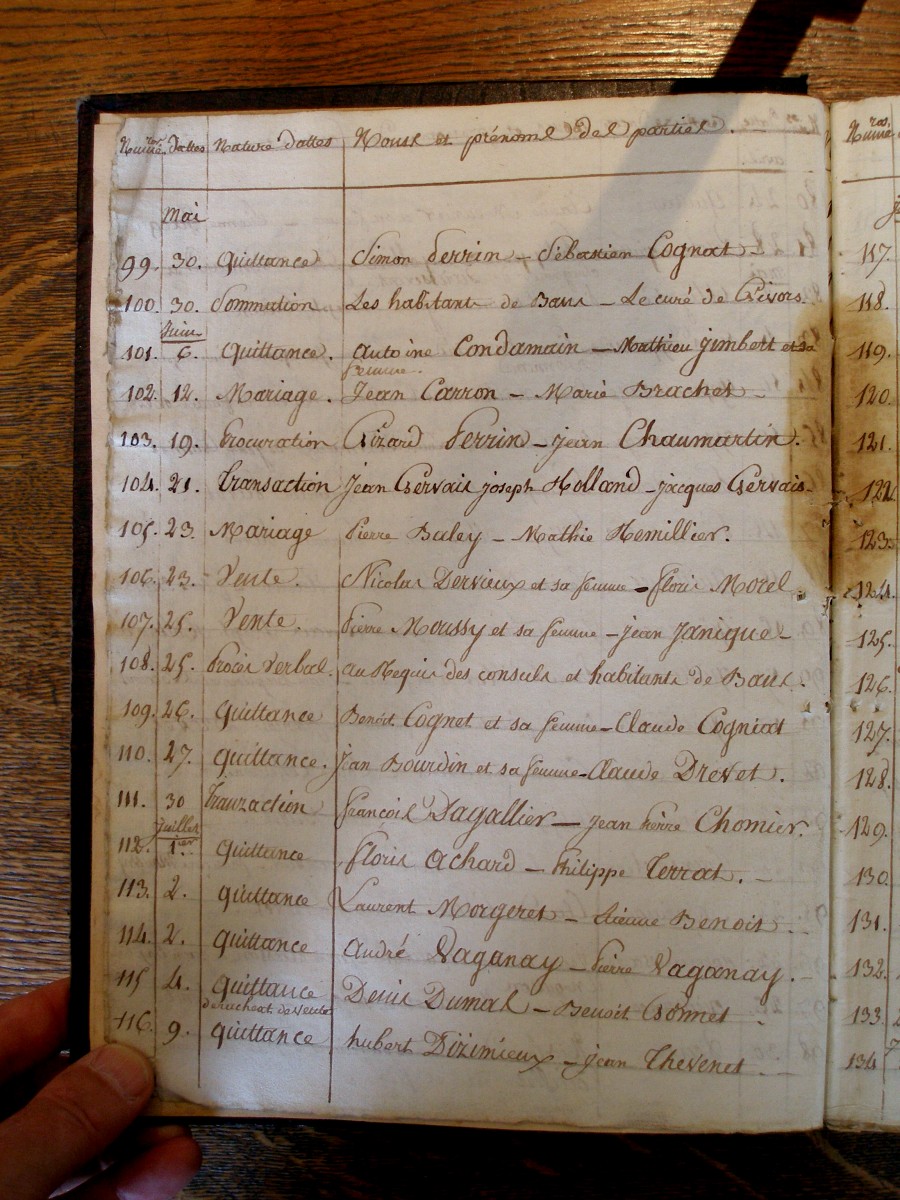 Numéros. Dattes Nature d'attes Noms et prénoms des parties.
Mai
99. 30. Quittance Simon Perrin – Sébastien Cognat –
100. 30. Sommation Les habitants de Bans – Le curé de Givors.
Juin
101. 6. Quittance. Antoine Condamain – Mathieu Jimbert et sa
femme.
102. 12. Mariage. Jean Carron – Marie Brachet –
103. 19. Procuration Girard Perrin – Jean Chaumartin.
104. 21. Transaction Jean Gervais joseph Holland – Jacques Gervais.
105. 23. Mariage Pierre Baley – Mathie Hemillier.
106. 23. Vente. Nicolas Dervieux et sa femme – floris Morel
107. 25. Vente. Pierre Moussy et sa femme – jean Janique –
108. 25. Procès Verbal. au Requis des consuls et habitants de Bans.
109. 26. Quittance Benoit Cognet et sa femme – Claude Cogniat
110. 27. Quittance. Jean Bourdin et sa femme – Claude Drevet.
111. 30 Tranzaction françois Dagallier – Jean pierre Chomier.
Juillet
112. 1er Quittance floris Achard – Philippe Terrat. –
113. 2. Quittance Laurent Morgeret – Etienne Benoit
114. 2. Quittance André Vaganay – Pierre Vaganay. –
115 4. Quittance Denis Dumas – Benoit Gonnet.
de racheat de Vente
116. 9. Quittance hubert Dizimieux – jean Thevenet. –
Numéros
117.
118.
119.
120.
121.
122
123.
124.
125.
126.
127.
128.
129.
130.
131.
132.
133.
134